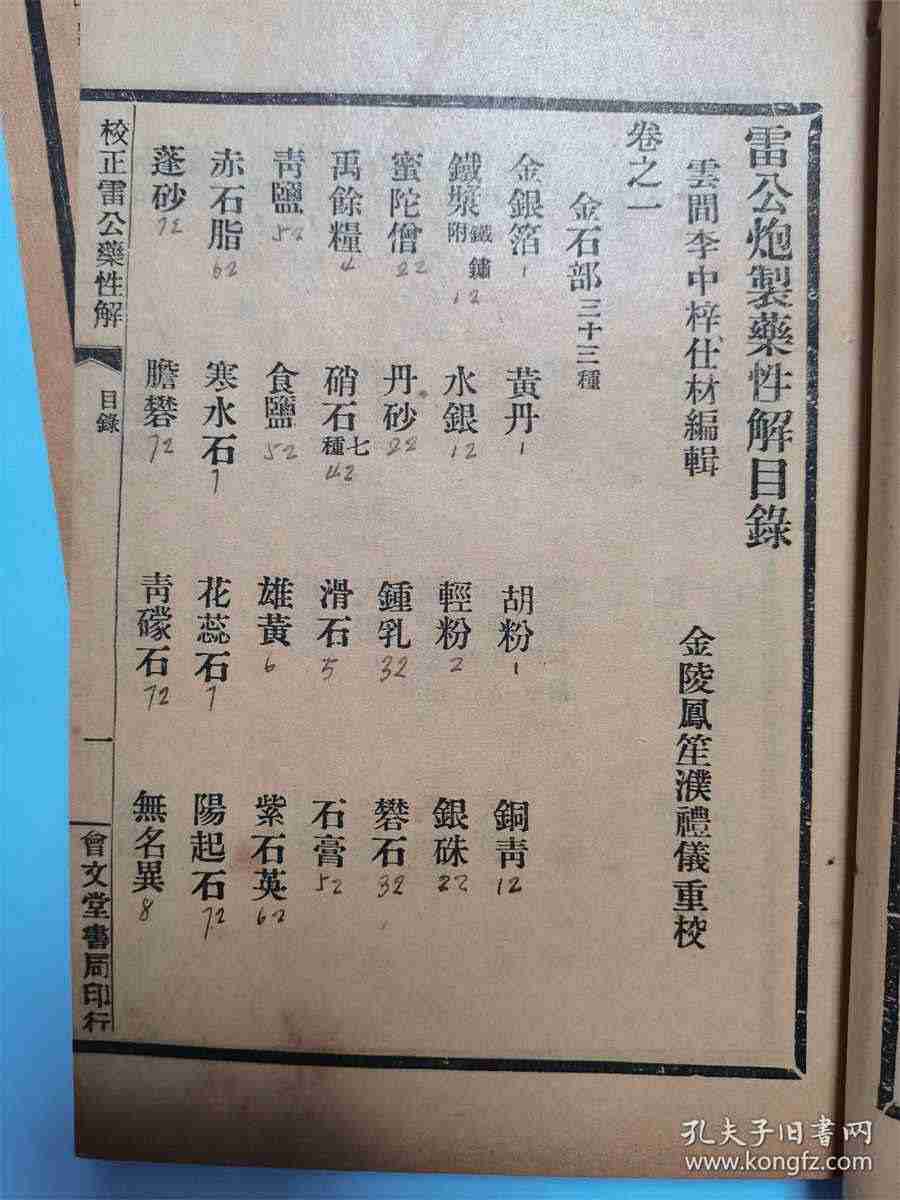 雷公炮製藥性解目錄
雲間李中梓仕材編輯 金陵鳳笙濮禮儀重校
卷之一
金石部三十三種
金銀箔1 黃丹1 胡粉1 銅青12
鐵漿附鐵鏽12 水銀12 輕粉2 銀硃22
蜜陀僧22 丹砂22 鍾乳32 礬石32
禹餘糧4 硝石七種42 滑石5 石膏52
青鹽52 食鹽52 雄黃6 紫石英62
赤石脂62 寒水石7 花蕊石7 陽起石72
蓬砂72 膽礬72 青礞石72 無名異8
校正雷公藥性解 目錄 一 會文堂書局印行
孔夫子旧书网
www.kongfz.com